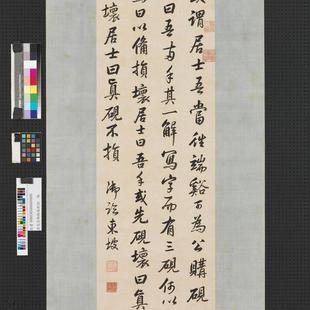 謂居士吾當往端谿可為公購硯
曰吾兩手其一解寫字而有三硯何以
為曰以備損壞居士曰吾手或先硯壞曰真
壞居士曰真硯不損
御臨東坡